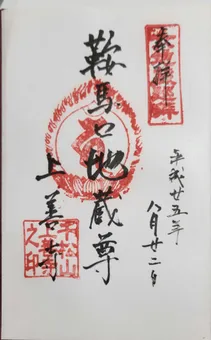 奉拝
平成廿五年
八月廿二日
鞍馬口地蔵尊
上善寺
千松山
之印